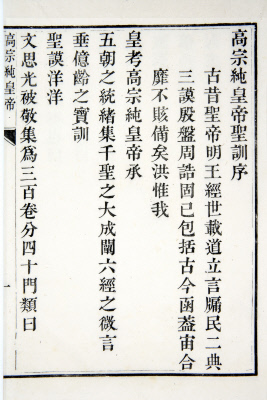 高宗純皇帝聖訓序
古昔聖帝明王經世載道立言牖民二典
三謨殷盤周誥固已包括古今函葢宙合
靡不賅備矣洪惟我
皇考高宗純皇帝承
五朝之統緒集千聖之大成闡六經之微言
垂億齡之寶訓
聖謨洋洋
文思光被敬集爲三百卷分四十門類曰
高宗純皇帝
一